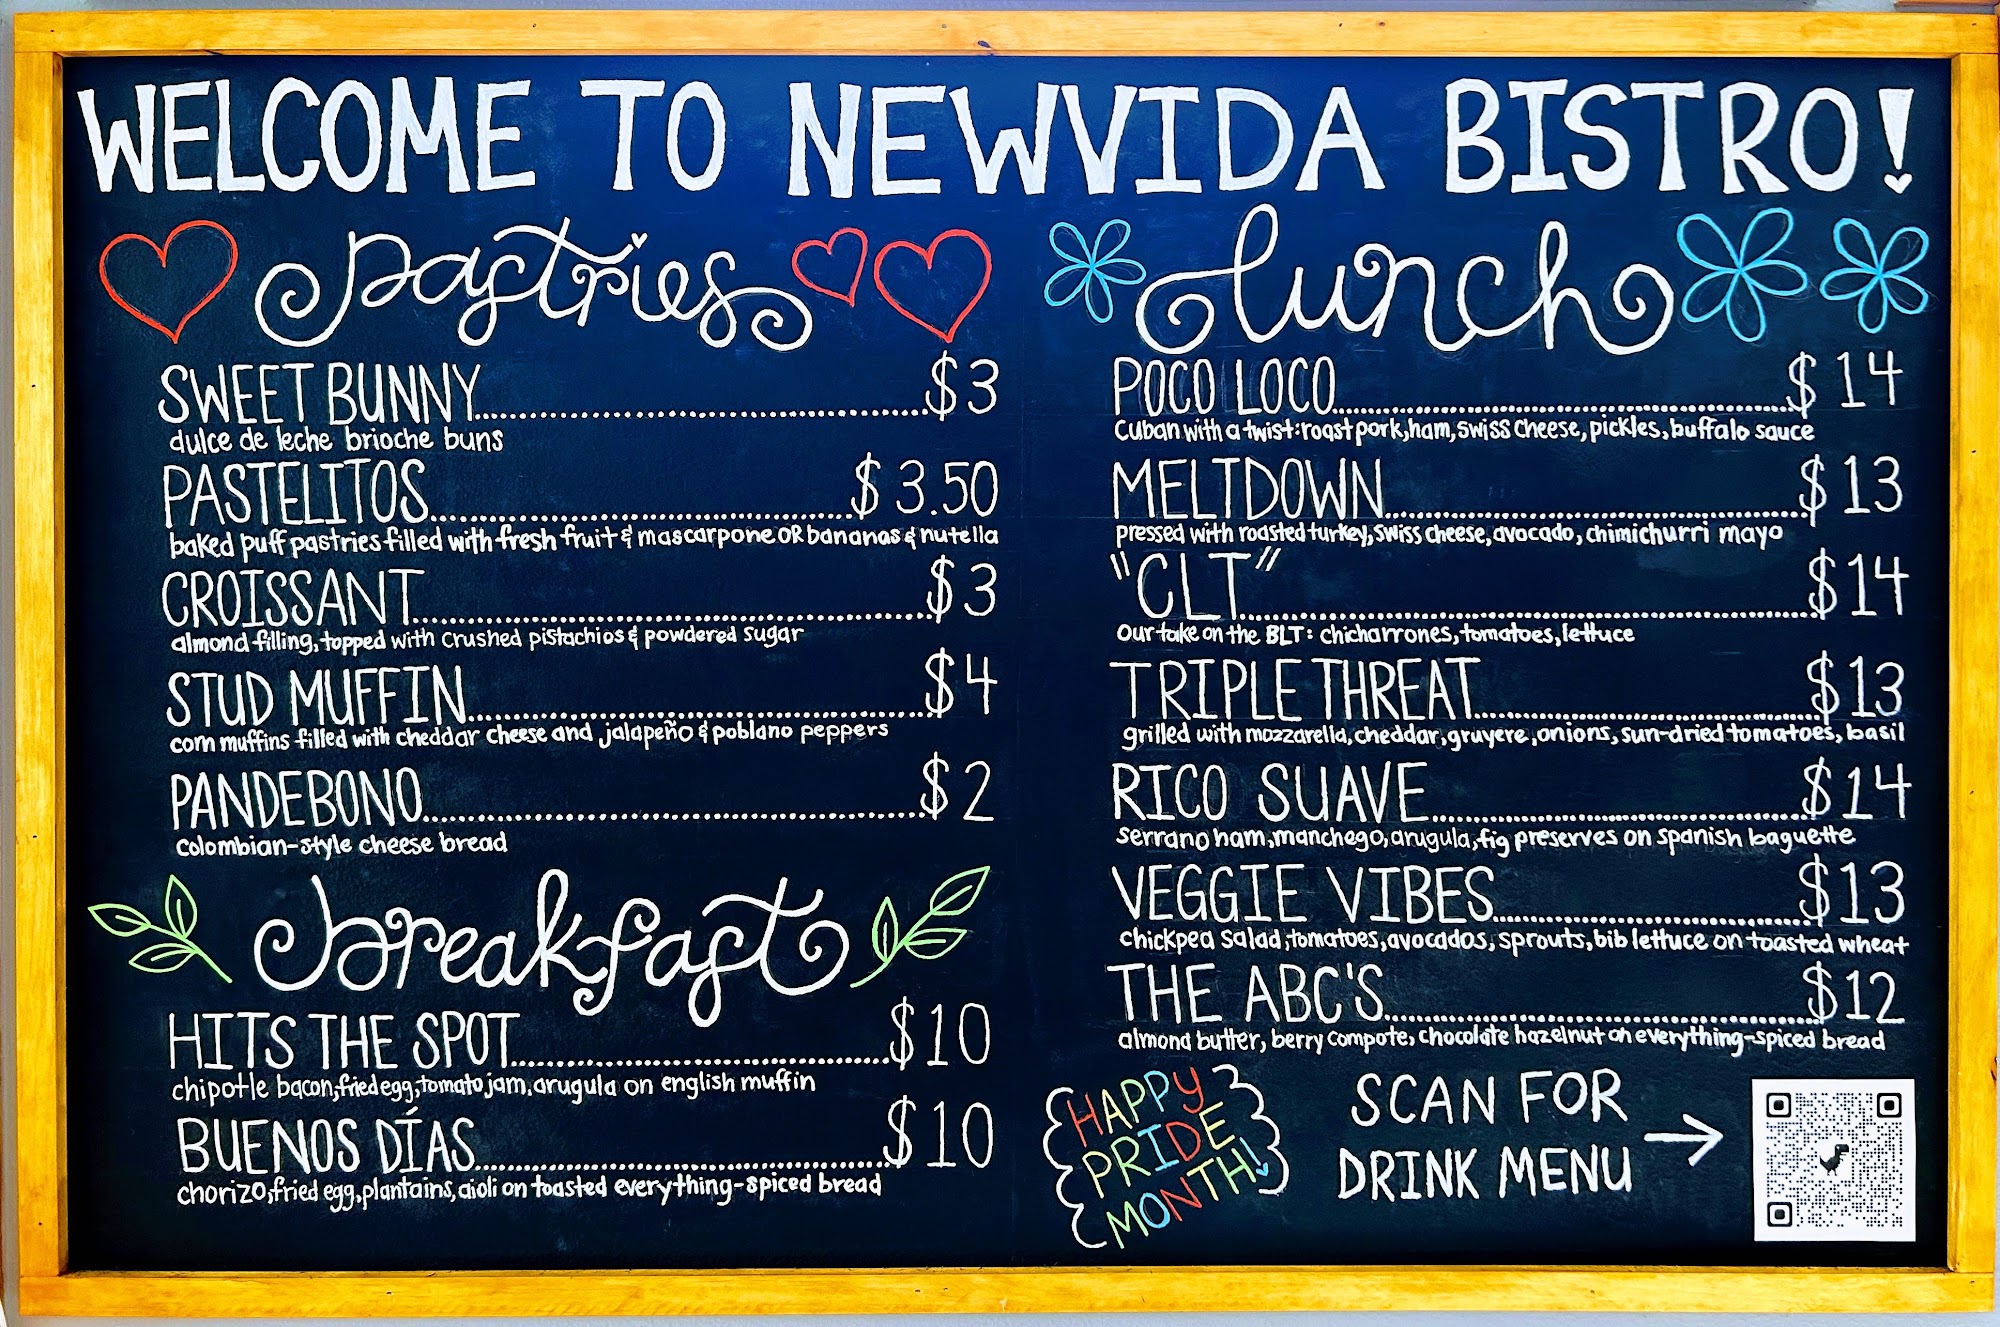 WELCOME TO NEWVIDA BISTRO!
pastries
SWEET BUNNY $3
dulce de leche brioche buns
PASTELITOS $3.50
baked puff pastries filled with fresh fruit & mascarpone OR bananas & nutella
CROISSANT $3
almond filling, topped with crushed pistachios & powdered sugar
STUD MUFFIN $4
corn muffins filled with cheddar cheese and jalapeño & poblano peppers
PANDEBONO $2
colombian-style cheese bread
breakfast
HITS THE SPOT $10
chipotle bacon, fried egg, tomato jam, arugula on english muffin
BUENOS DÍAS $10
chorizo, fried egg, plantains, aioli on toasted everything-spiced bread
lunch
POCO LOCO $14
Cuban with a twist: roast pork, ham, swiss cheese, pickles, buffalo sauce
MELTDOWN $13
pressed with roasted turkey, swiss cheese, avocado, chimichurri mayo
"CLT" $14
our take on the BLT: chicharrones, tomatoes, lettuce
TRIPLE THREAT $13
grilled with mozzarella, cheddar, gruyere, onions, sun-dried tomatoes, basil
RICO SUAVE $14
serrano ham, manchego, arugula, fig preserves on spanish baguette
VEGGIE VIBES $13
chickpea salad, tomatoes, avocados, sprouts, bib lettuce on toasted wheat
THE ABC'S $12
almond butter, berry compote, chocolate hazelnut on everything-spiced bread
HAPPY
PRIDE
MONTH!
SCAN FOR
DRINK MENU